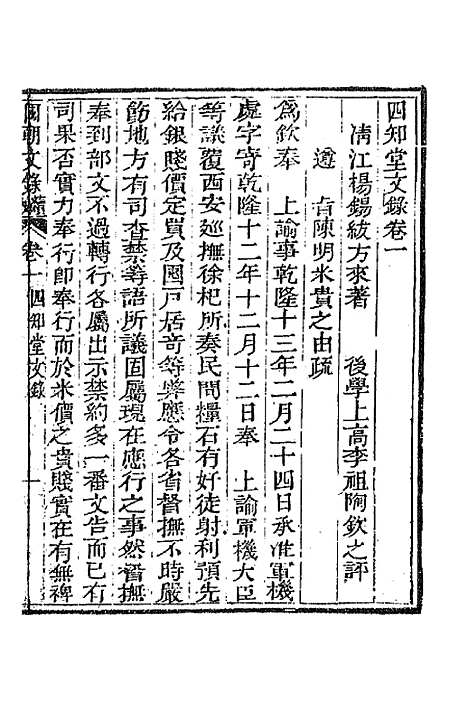 四知堂文錄卷一
清江楊錫紱方來著　後學上高李祖陶欽之評
遵　旨陳明米貴之由疏
爲欽奉　上諭事乾隆十三年二月二十四日承准軍機
處字寄乾隆十二年十二月十二日奉　上諭軍機大臣
等議覆西安巡撫徐杞所奏民間糧石有奸徒射利預先
給銀賤價定買及囤戶居奇等弊應令各省督撫不時嚴
飭地方有司查禁等語所議固屬現在應行之事然督撫
奉到部文不過轉行各屬出示禁約多一番文告而已有
司果否實力奉行卽奉行而於米價之貴賤實在有無裨
國朝文錄續　卷一　四知堂文錄　一